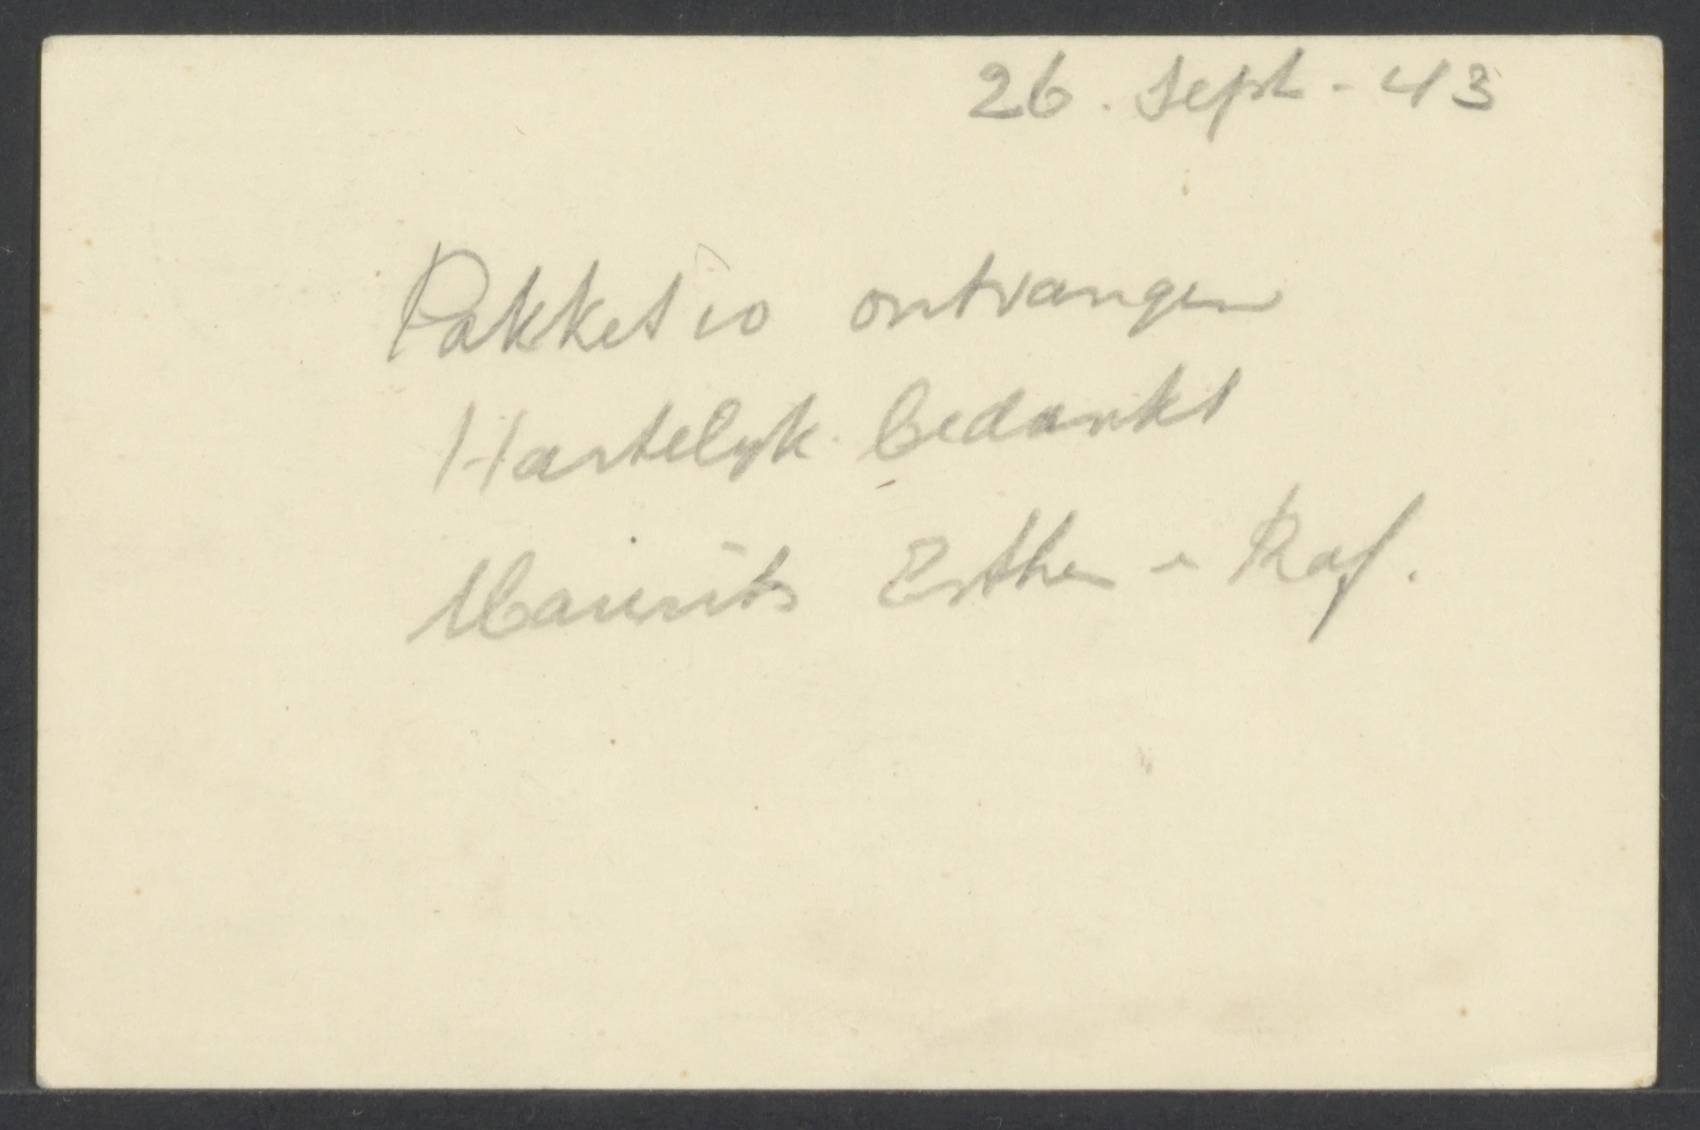 26. Sept - 43
Pakket 10 ontvangen
Hartelyk bedankt
Maurits Esther - Raf.